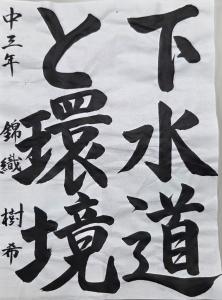 下水道
と環境
中三年 錦織 樹希